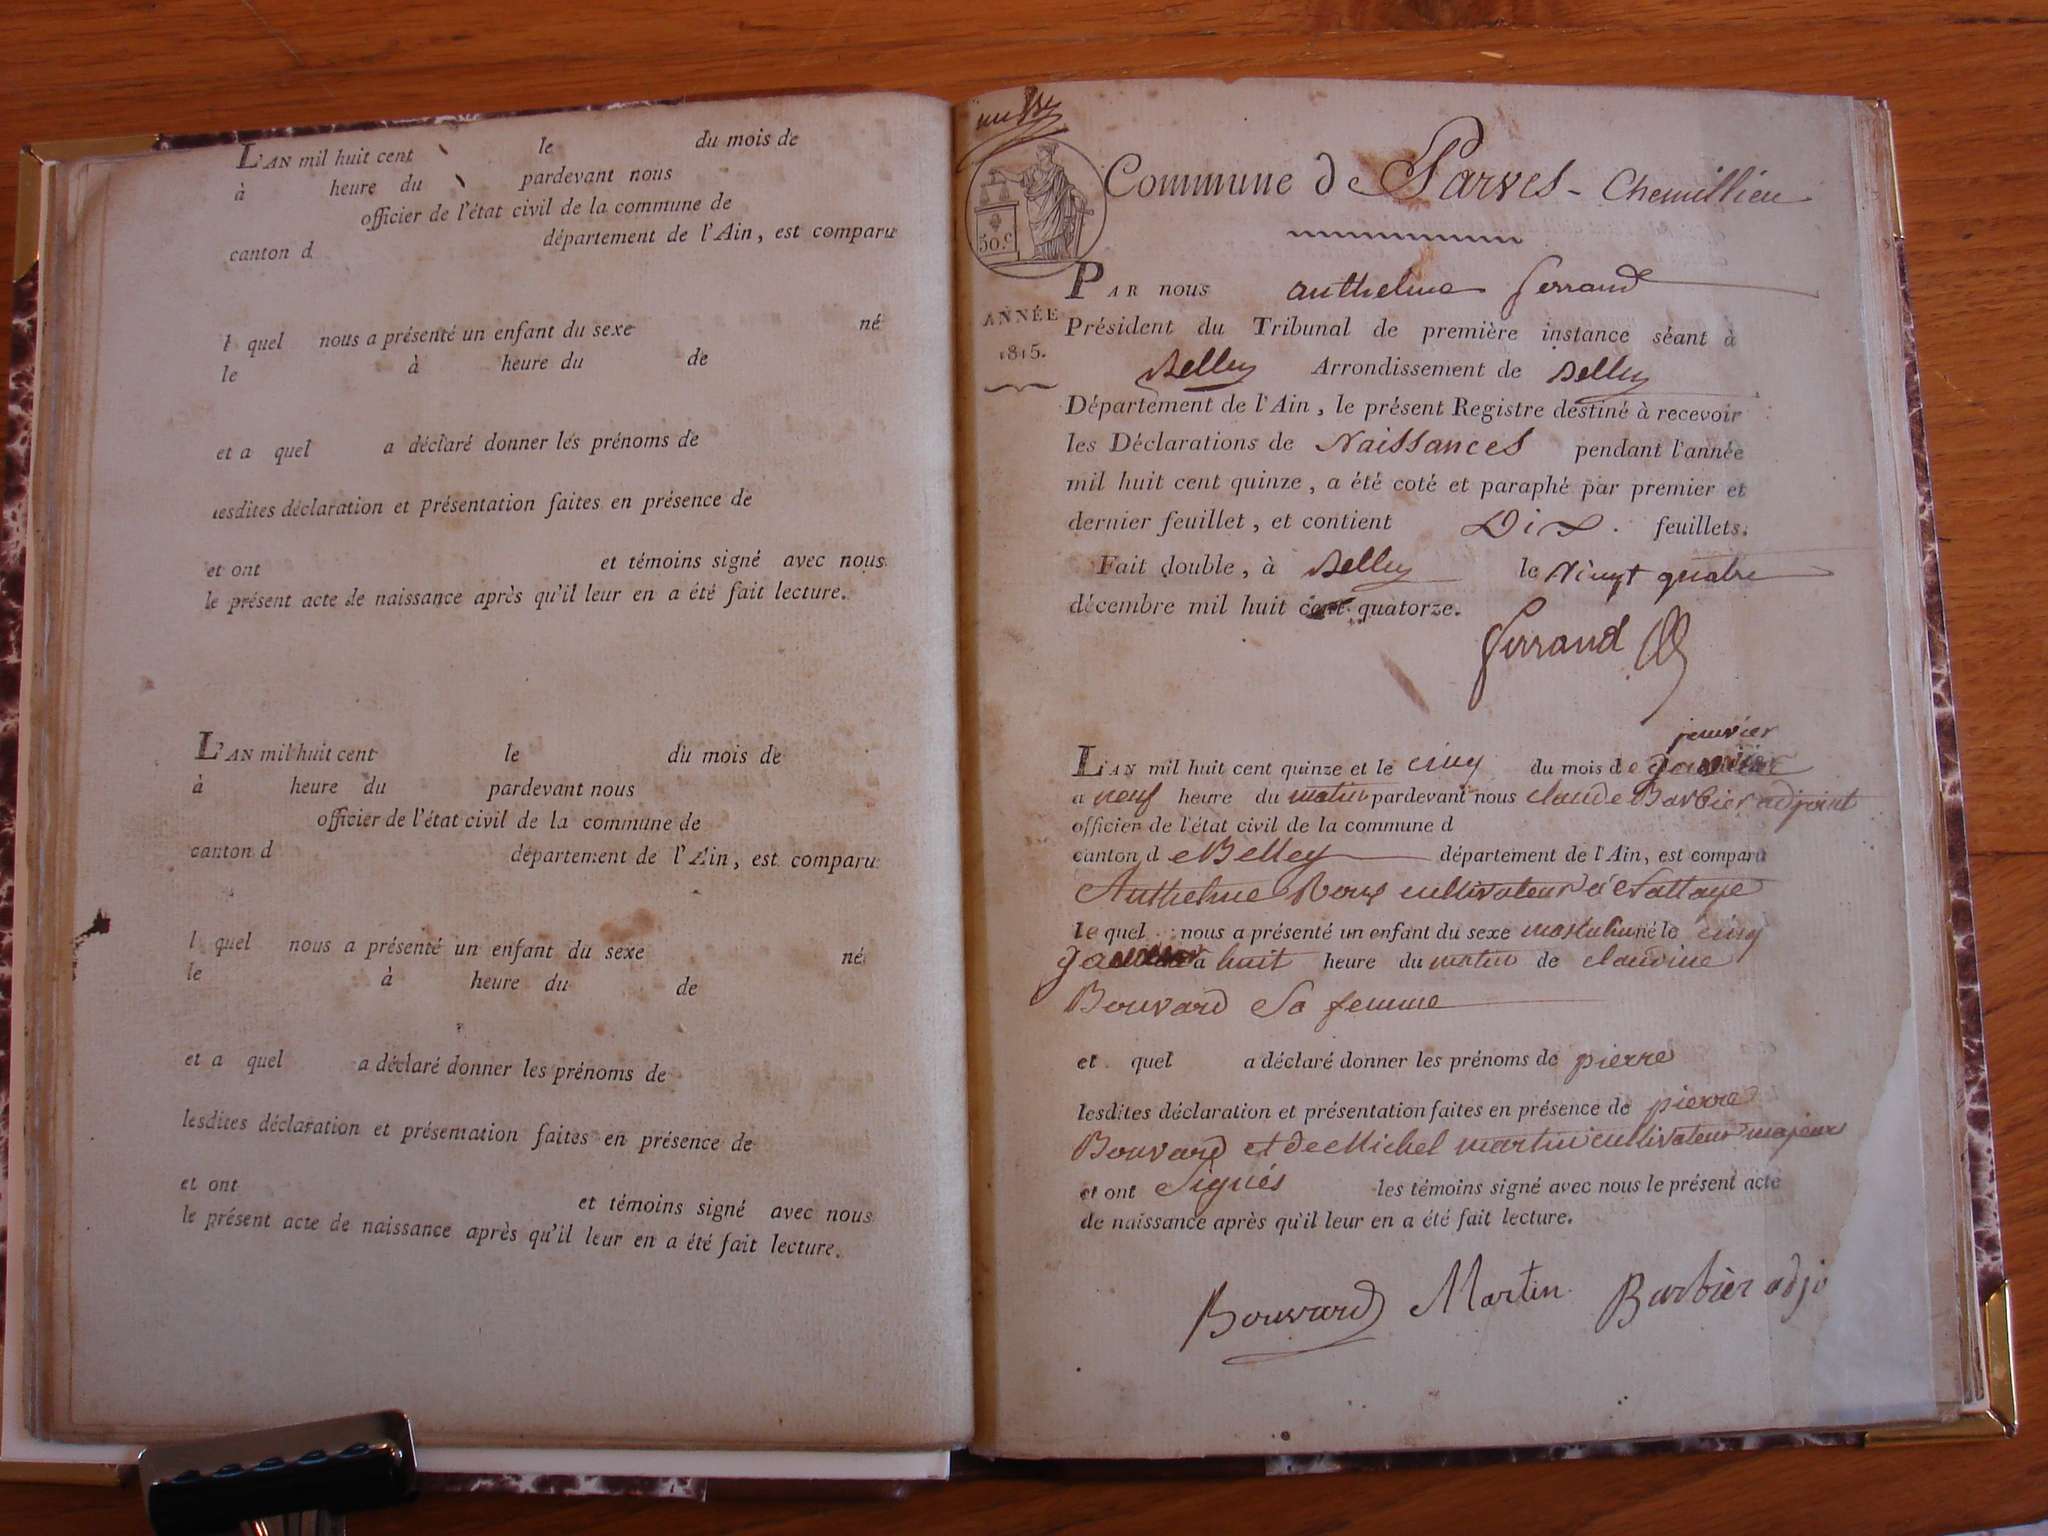 L'AN mil huit cent le du mois de
à heure du pardevant nous
officier de l'état civil de la commune de
canton d département de l'Ain, est comparu
l quel nous a présenté un enfant du sexe né
le à heure du de
et a quel a déclaré donner les prénoms de
lesdites déclaration et présentation faites en présence de
et ont et témoins signé avec nous
le présent acte de naissance après qu'il leur en a été fait lecture.
L'AN mil huit cent le du mois de
à heure du pardevant nous
officier de l'état civil de la commune de
canton d département de l'Ain, est comparu
l quel nous a présenté un enfant du sexe né
le à heure du de
et a quel a déclaré donner les prénoms de
lesdites déclaration et présentation faites en présence de
et ont et témoins signé avec nous
le présent acte de naissance après qu'il leur en a été fait lecture.
50.c
Commune de Parves - Chemillieu
ANNÉE
1815.
PAR nous Anthelme Ferrand
Président du Tribunal de première instance séant à
Belley Arrondissement de Belley
Département de l'Ain, le présent Registre destiné à recevoir
les Déclarations de Naissances pendant l'année
mil huit cent quinze, a été coté et paraphé par premier et
dernier feuillet, et contient Dix feuillets.
Fait double, à Belley le Vingt quatre
décembre mil huit cent quatorze.
Ferrand
janvier
L'AN mil huit cent quinze et le cinq du mois de
a neuf heure du matin pardevant nous claude Barbier adjoint
officier de l'état civil de la commune d
canton de Belley département de l'Ain, est comparu
Anthelme Roux cultivateur à Nattage
le quel nous a présenté un enfant du sexe masculin né le cinq
a huit heure du matin de claudine
Bouvard Sa femme
et quel a déclaré donner les prénoms de pierre
lesdites déclaration et présentation faites en présence de pierre
Bouvard et de Michel martin cultivateur majeur
et ont Signés les témoins signé avec nous le présent acte
de naissance après qu'il leur en a été fait lecture.
Bouvard Martin Barbier adjo